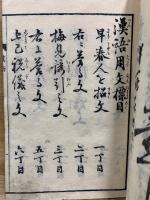 漢語用文標目
早春人を招文 一丁目
右に答る文 二丁目
梅見誘引文 三丁目
右に答る文 五丁目
上巳祝儀之文 六丁目